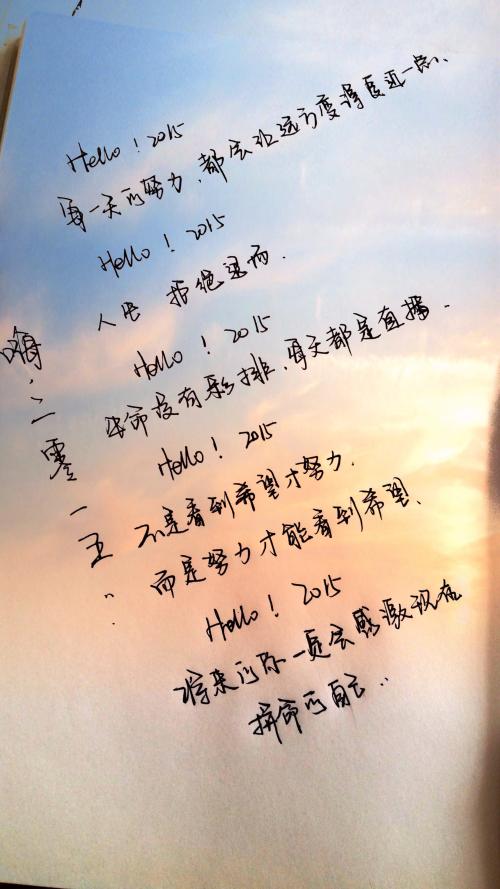 Hello！2015
每一天的努力，都会让远方变得更近一点、
Hello！2015
人生 拒绝
Hello！2015
生命没有彩排、每天都是直播.
Hello！2015
不是看到希望才努力.
而是努力才能看到希望、
Hello！2015
将来的你一定会感激现在
拼命的自己..
嗨.二零一五..